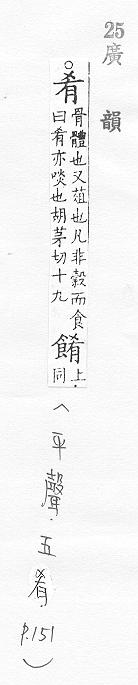 25
廣韻
○肴骨體也又葅也凡非穀而食
曰肴亦啖也胡茅切十九餚上同
(平聲.五肴.p.151)